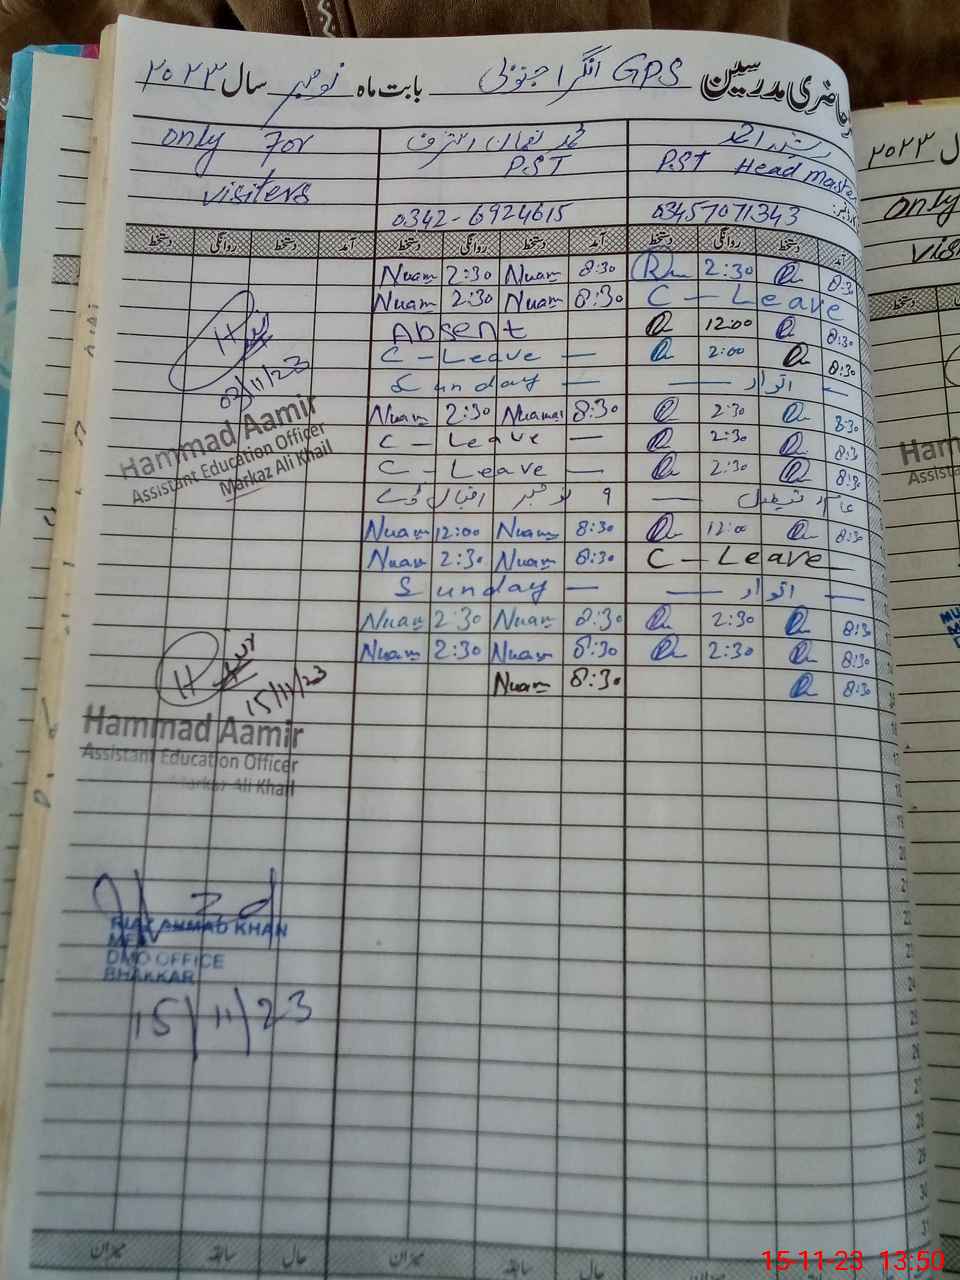 حاضری مدرسین GPS انگرا جنوبی بابت ماہ نومبر سال ۲۰۲۳
رشید احمد
PST Head Master
03457071343
محمد نعمان اشرف
PST
0342-6924615
only For
visiters
آمد دستخط روانگی دستخط آمد دستخط روانگی دستخط آمد دستخط روانگی دستخط
Nuam 2:30 Nuam 8:30 2:30 8:30
Nuam 2:30 Nuam 8:30 C - Leave
Absent 12:00 8:30
C - Leave — 2:00 8:30
Sunday — — اتوار —
Nuam 2:30 Nuam 8:30 2:30 8:30
C - Leave — 2:30 8:30
C - Leave — 2:30 8:30
عام تعطیل — ۹ نومبر اقبال ڈے
Nuam 12:00 Nuam 8:30 12:00 8:30
Nuam 2:30 Nuam 8:30 C - Leave
Sunday — — اتوار —
Nuam 2:30 Nuam 8:30 2:30 8:30
Nuam 2:30 Nuam 8:30 2:30 8:30
Nuam 8:30 8:30
02/11/23
Hammad Aamir
Assistant Education Officer
Markaz Ali Khail
15/11/23
Hammad Aamir
Assistant Education Officer
Markaz Ali Khail
RIAZ AHMAD KHAN
MEA
DMO OFFICE
BHAKKAR
15/11/23
حال سابقہ میزان حال سابقہ میزان
سال ۲۰۲۳
only
دستخط
15-11-23 13:50